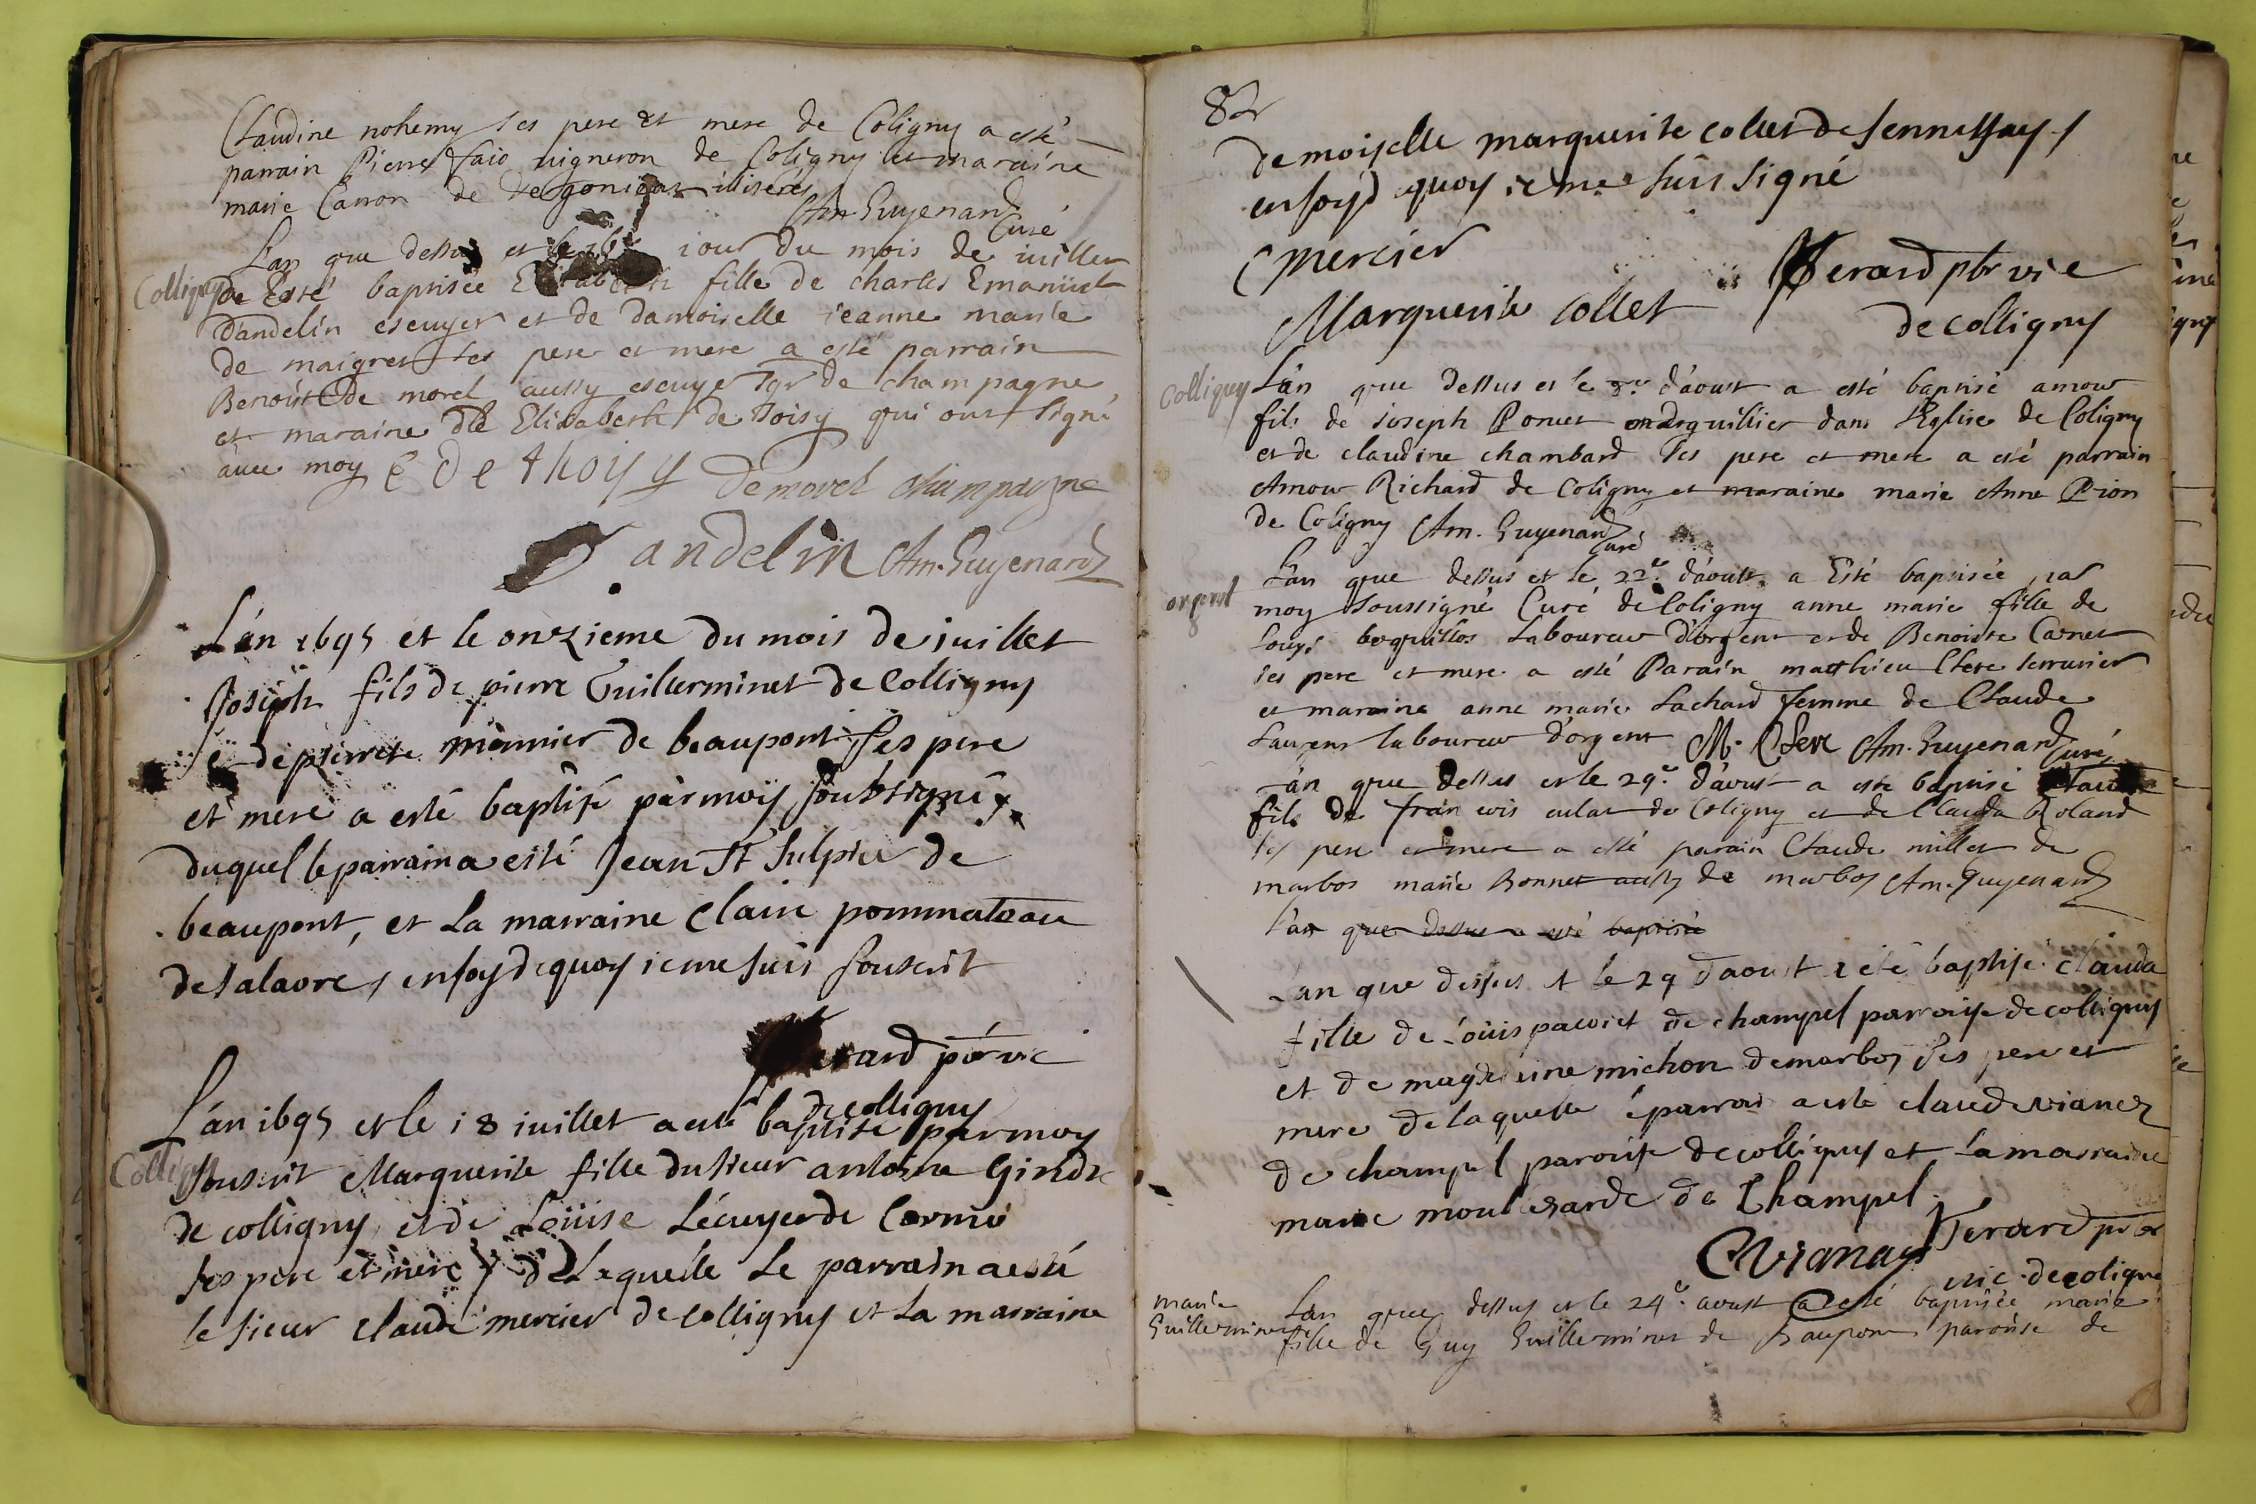 Claudine nohemy ses pere et mere de Coligny a esté
parrain Pierre faio uigneron de Coligny et maraine
marie Canon de illiserés
Am. Guyenard
Curé
L'an que dessus et le iour du mois de iuillet
Collign
a Esté baptisée fille de charles Emanüel
dandelin escuyer et de damoiselle ieanne marie
de maigret ses pere et mere a esté parrain
Benoist de morel aussy escuyer sgr de champagne
et maraine dlle Elisabeth de Toisy qui ont signé
auec moy E De thoisy Demorel Champagne
Dandelin Am. Guyenard
L'án 1695 et le onzieme du mois de iuillet
Joseph fils de pierre Guillerminet de Colligny
et de pierrete monnier de beaupont ses pere
et mere a esté baptisé par moy soubsigné
duquel le parrain a esté Jean St Sulpice de
beaupont, et La marraine Claire pommateau
de salauore, en foy de quoy ie me suis souscrit
erard pbr vic
de colligny
L'án 1695 et le 18 iuillet a esté baptisée par moy
Collign
souscrit Marguerite fille du sieur antoine Gindre
de colligny et de Loüise Lécuyer de Cormo
ses pere et mere de Laquelle Le parrain a esté
le sieur claude mercier de colligny et La marraine
82
demoiselle marguerite collet de
en foy de quoy ie me suis signé
C mercier
Marguerite Collet Ferard pbr vic
de colligny
Colligny
L'án que dessus et le d'áoust a esté baptisé amour
fils de ioseph Poncet marguillier dans l'Eglise de Coligny
et de claudine chambard ses pere et mere a esté parrain
Amour Richard de Coligny et maraine marie Anne Pion
de Coligny Am. Guyenard
Curé
L'an que dessus et le 22e. d'áoust a Esté baptisée par
orgent
moy soussigné Curé de Coligny anne marie fille de
Louys boquillos Laboureur d'orgent et de Benoiste Carnet
ses pere et mere a esté Parain matthieu Clere serrurier
et maraine anne marie Lachard femme de Claude
Laurent laboureur d'orgent M. Clere Am. Guyenard
Curé
L'an que dessus et le 29e. d'áoust a este baptisé
fils de francois culat de Coligny et de Clauda Roland
ses pere et mere a esté parain Claude millet de
marbos marie Bonnet aussy de marbos Am. Guyenard
L'an que dessus a esté baptisée
L'an que dessus et le 29 d'aoust a esté baptisé clauda
fille de Loüis pauoiet de champel parroisse de colligny
et de magdeleine michon de marbos ses pere et
mere de laquelle le parrai a este claude vianez
de champel paroisse de colligny et La marraine
marie de Champel
C Vianay Ferard pbr
vic. de coligny
marie
Guillerminet
L'an que dessus et le 24e. aoust a esté baptisée marie
fille de Guy Guilleminet de Baupont paroisse de